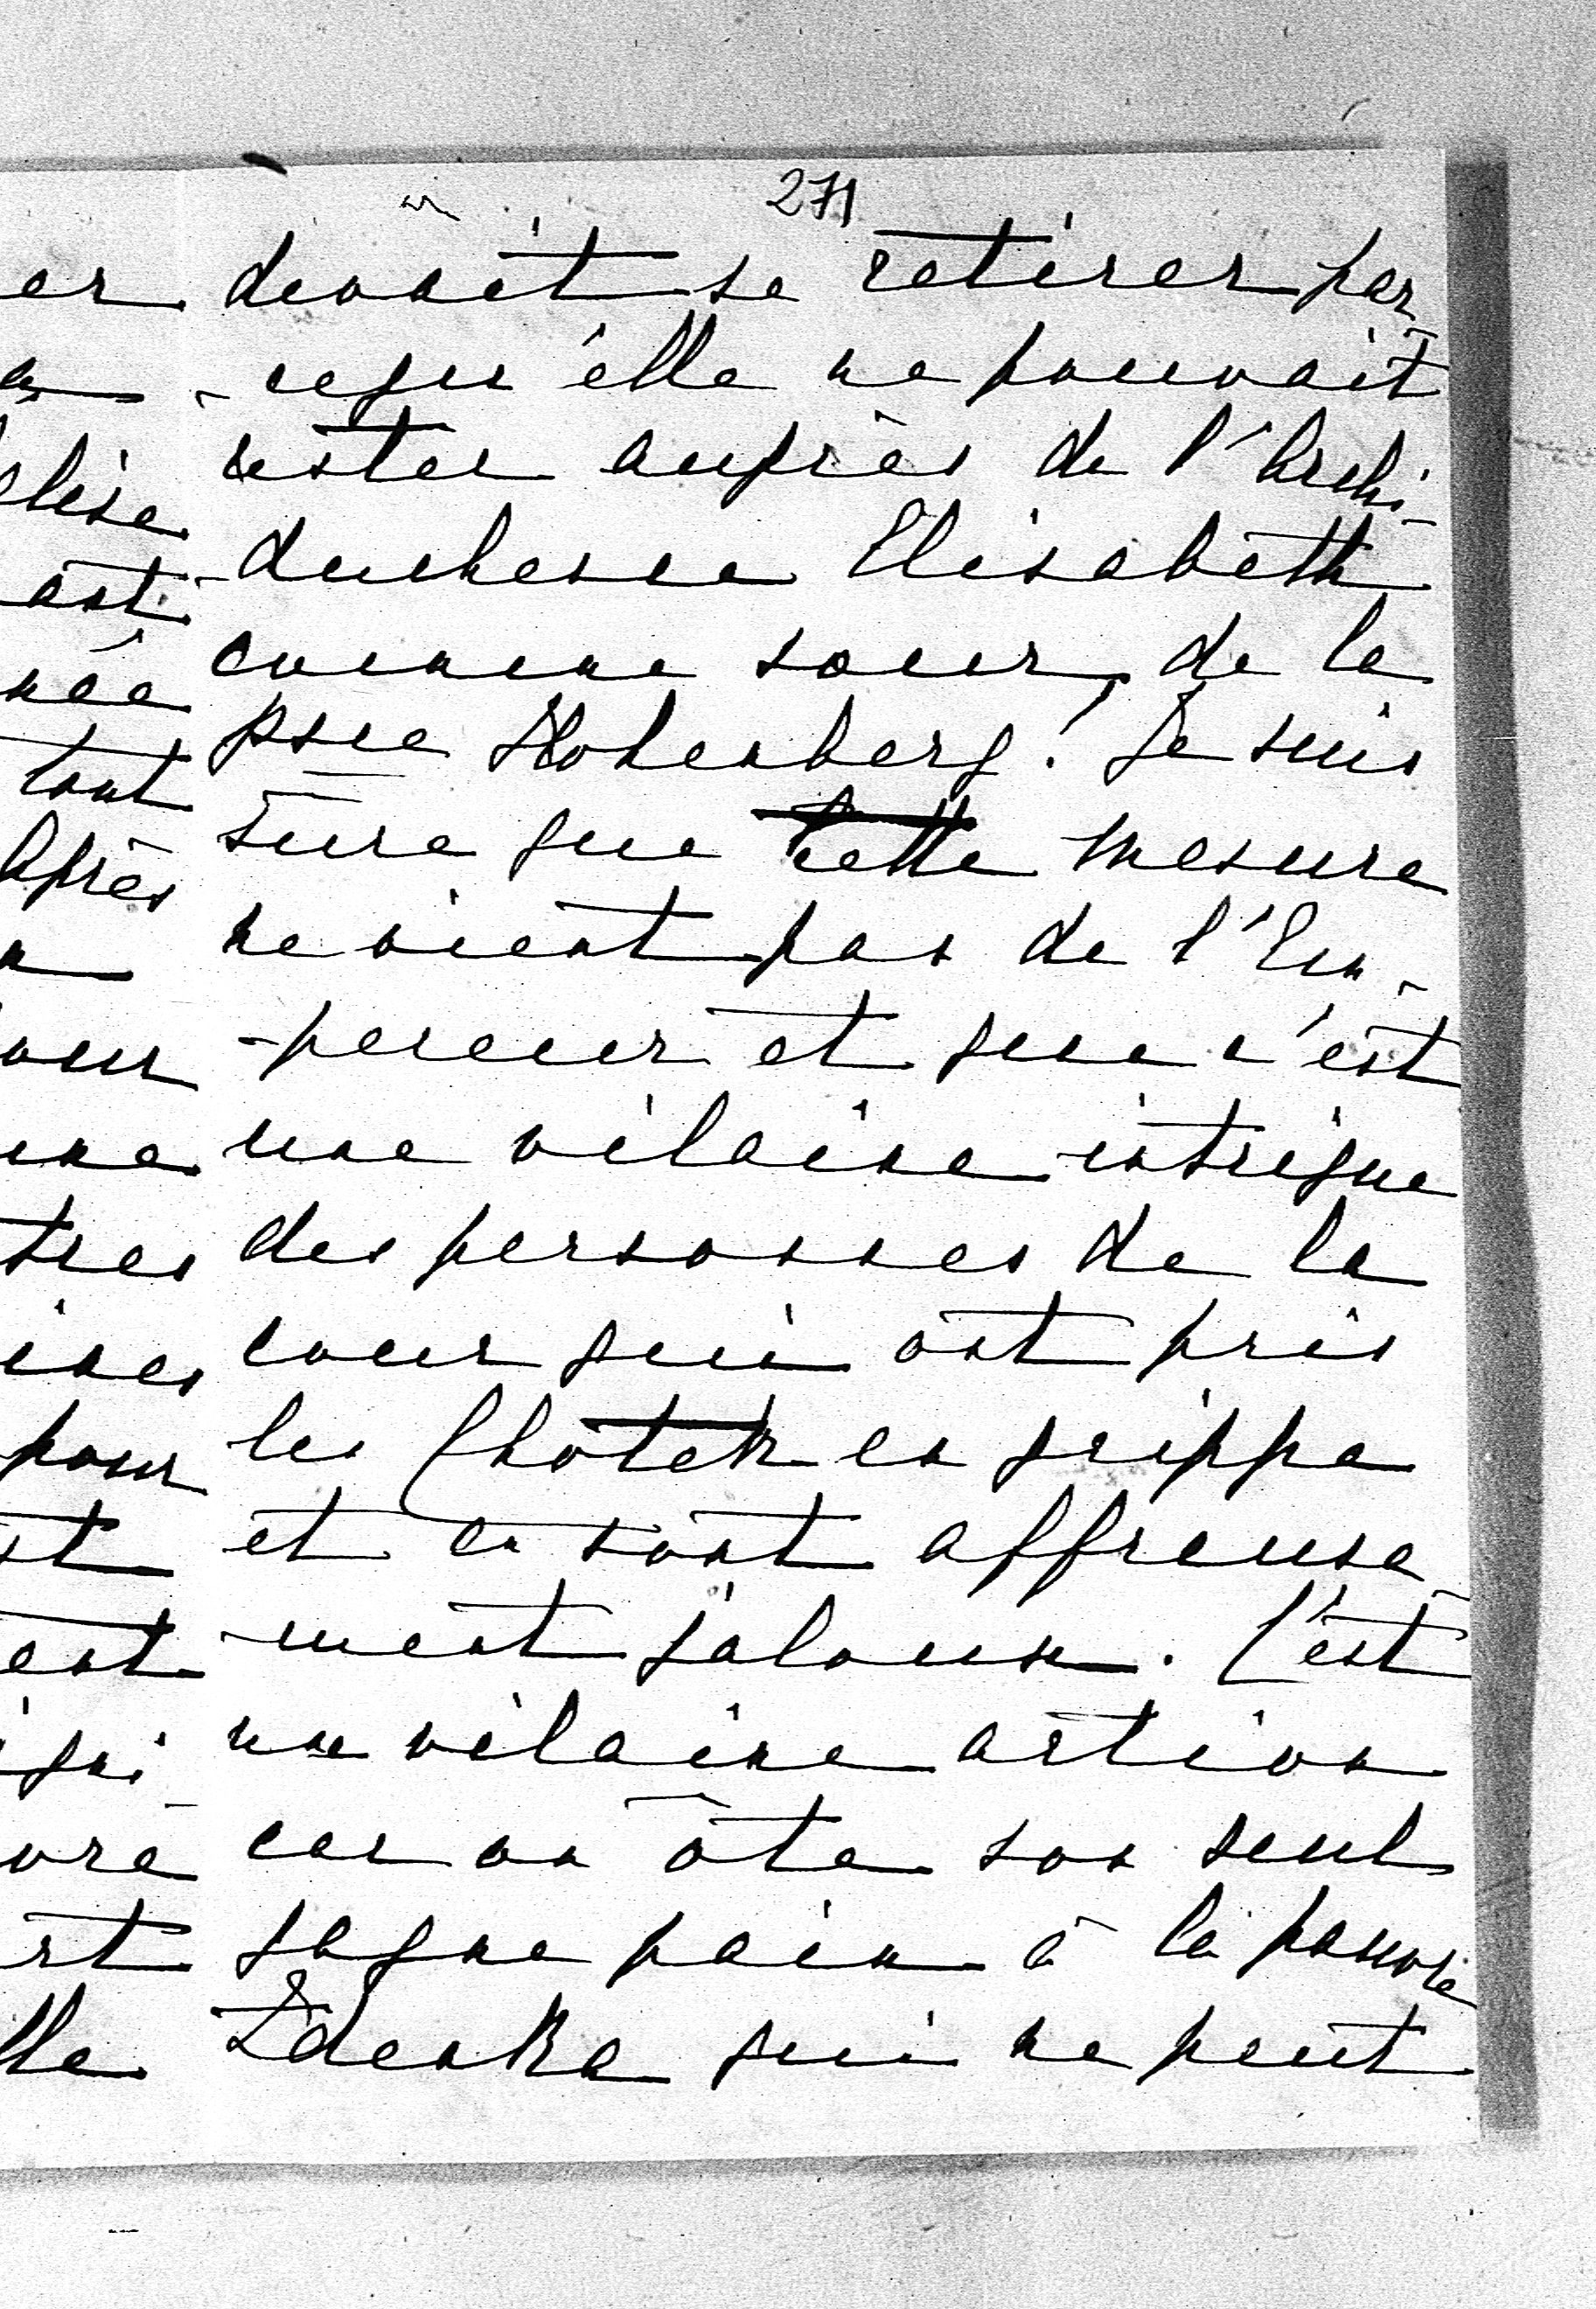 271
devait se retirer par-
-cequ'elle ne pouvait
rester auprès de l'Archi-
-duchesse Elisabeth
comme soeur de la
psse Hohenberg! Je suis
sûre que cette mesure
ne vient pas de l'Em-
-pereur et que c'est
une vilaine intrigue
des personnes de la
cour qui ont pris
les Chotek en grippe
et en sont affreuse-
-ment jaloux. C'est
une vilaine action
car on ôte son seul
gagne pain à la pauvre
Zdenka qui ne peut